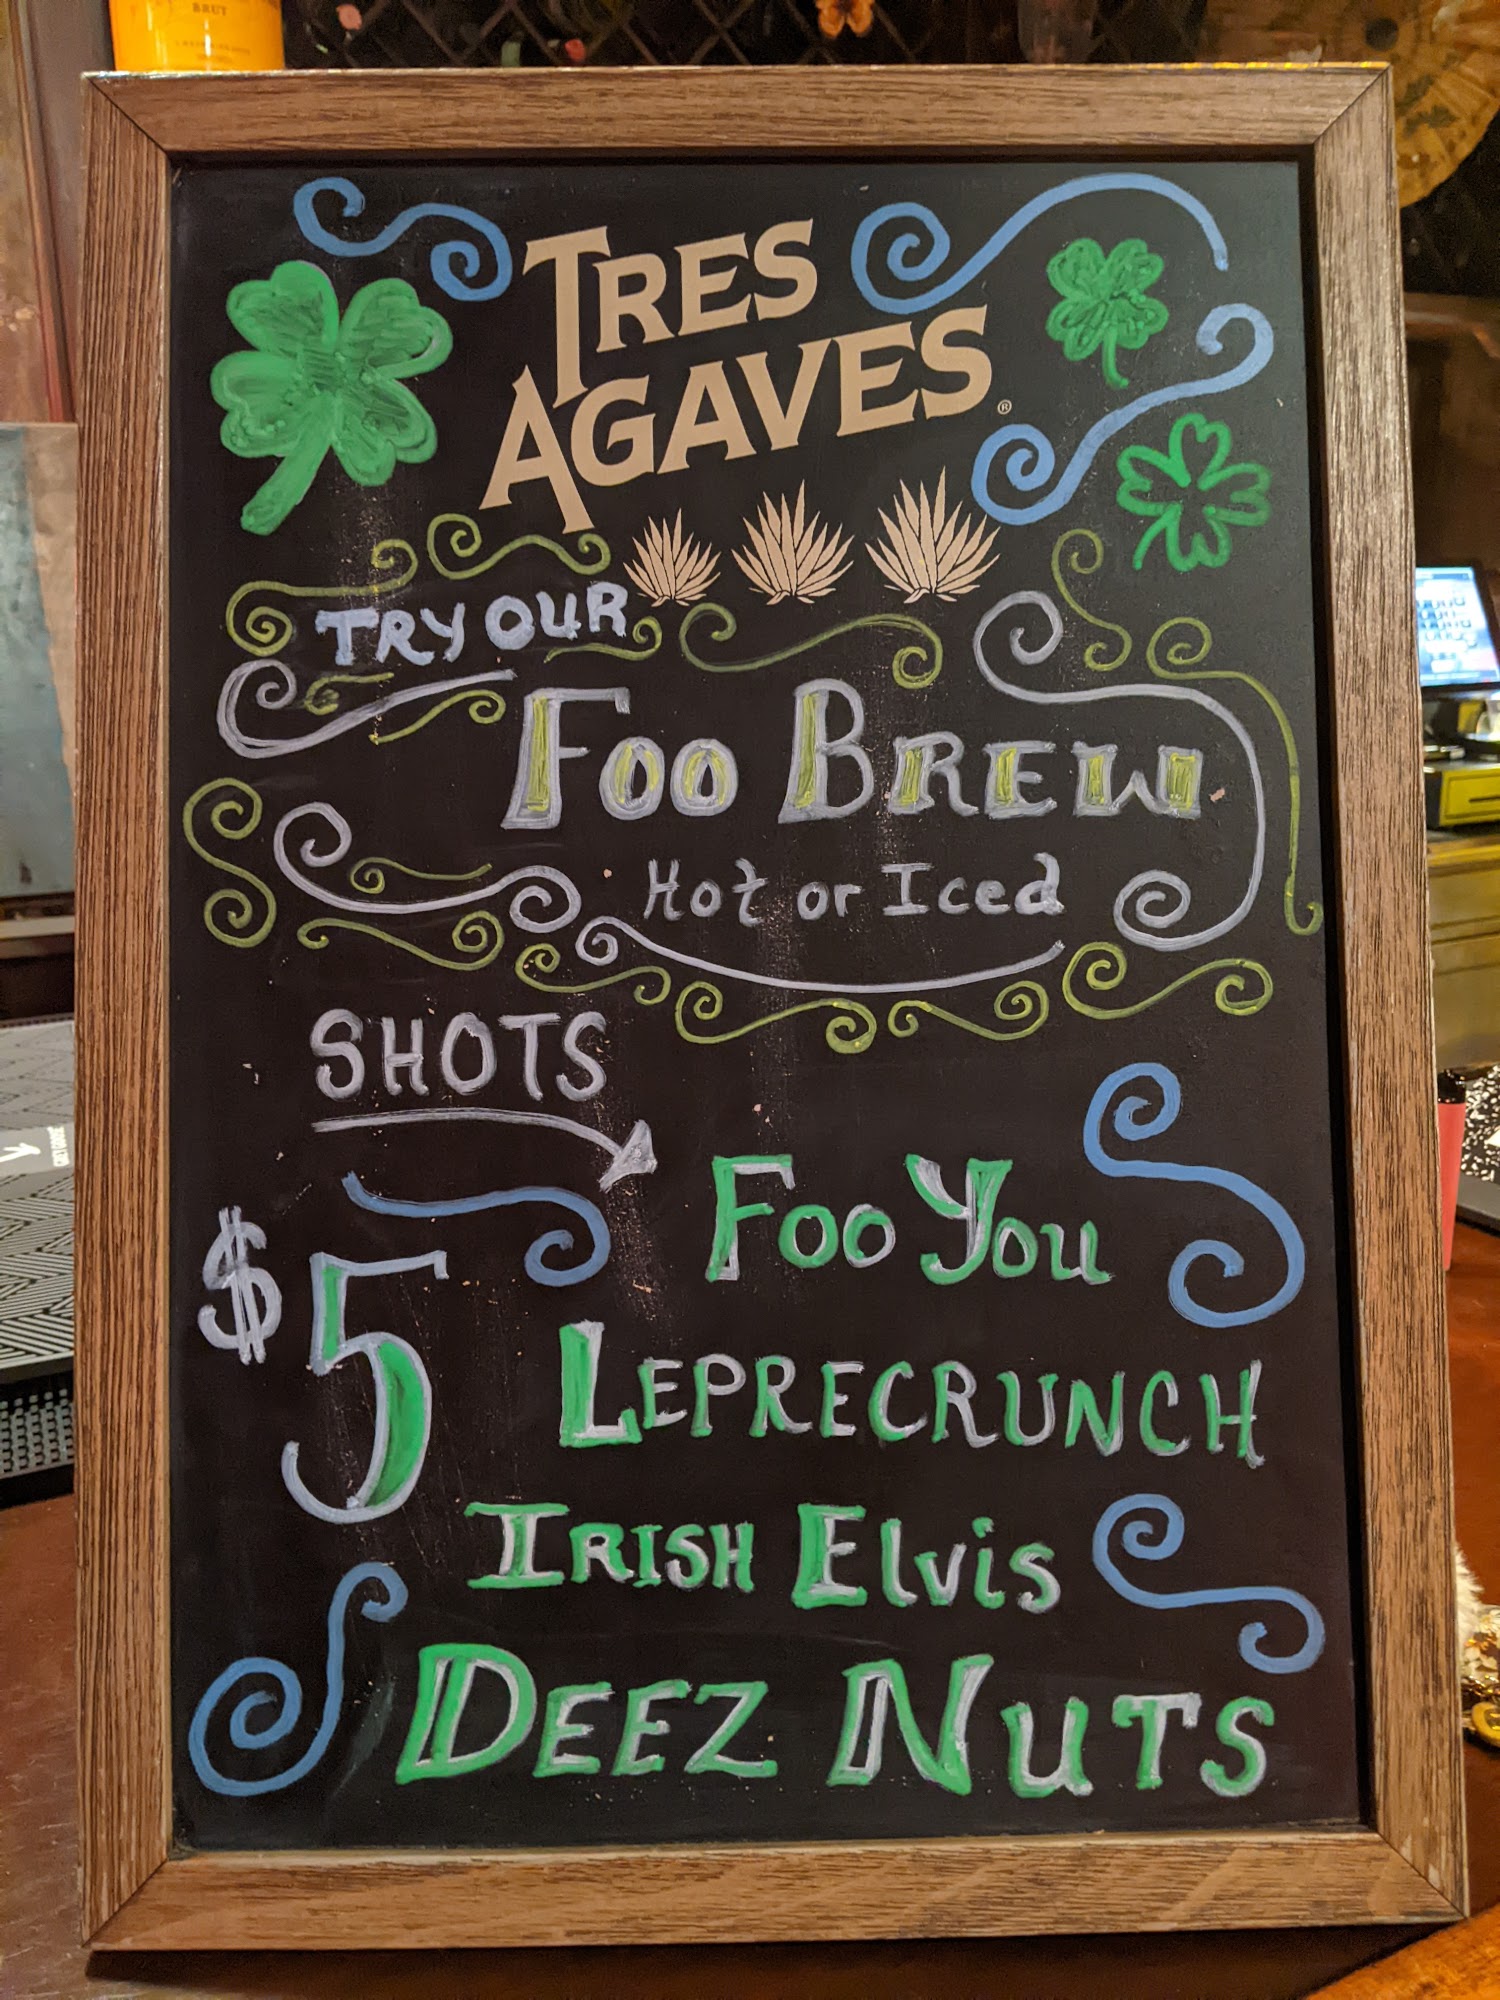 BRUT
TRES
AGAVES®
TRY OUR
FOO BREW
Hot or Iced
SHOTS
$5
FOO YOU
LEPRECRUNCH
IRISH Elvis
DEEZ NUTS